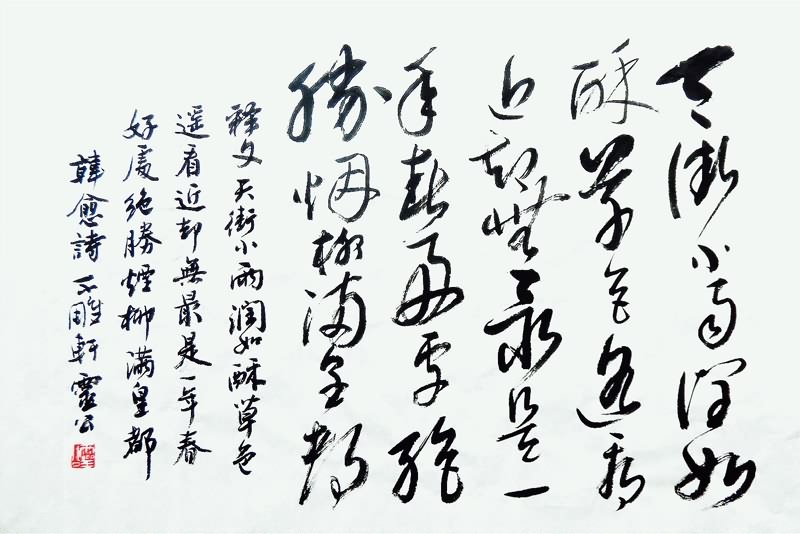 天街小雨润如
酥草色遥看
近却無最是一
年春好处绝
勝烟柳满皇都
释文 天街小雨润如酥草色
遥看近却無最是一年春
好處绝勝煙柳满皇都
韓愈詩 不雕軒 靈公